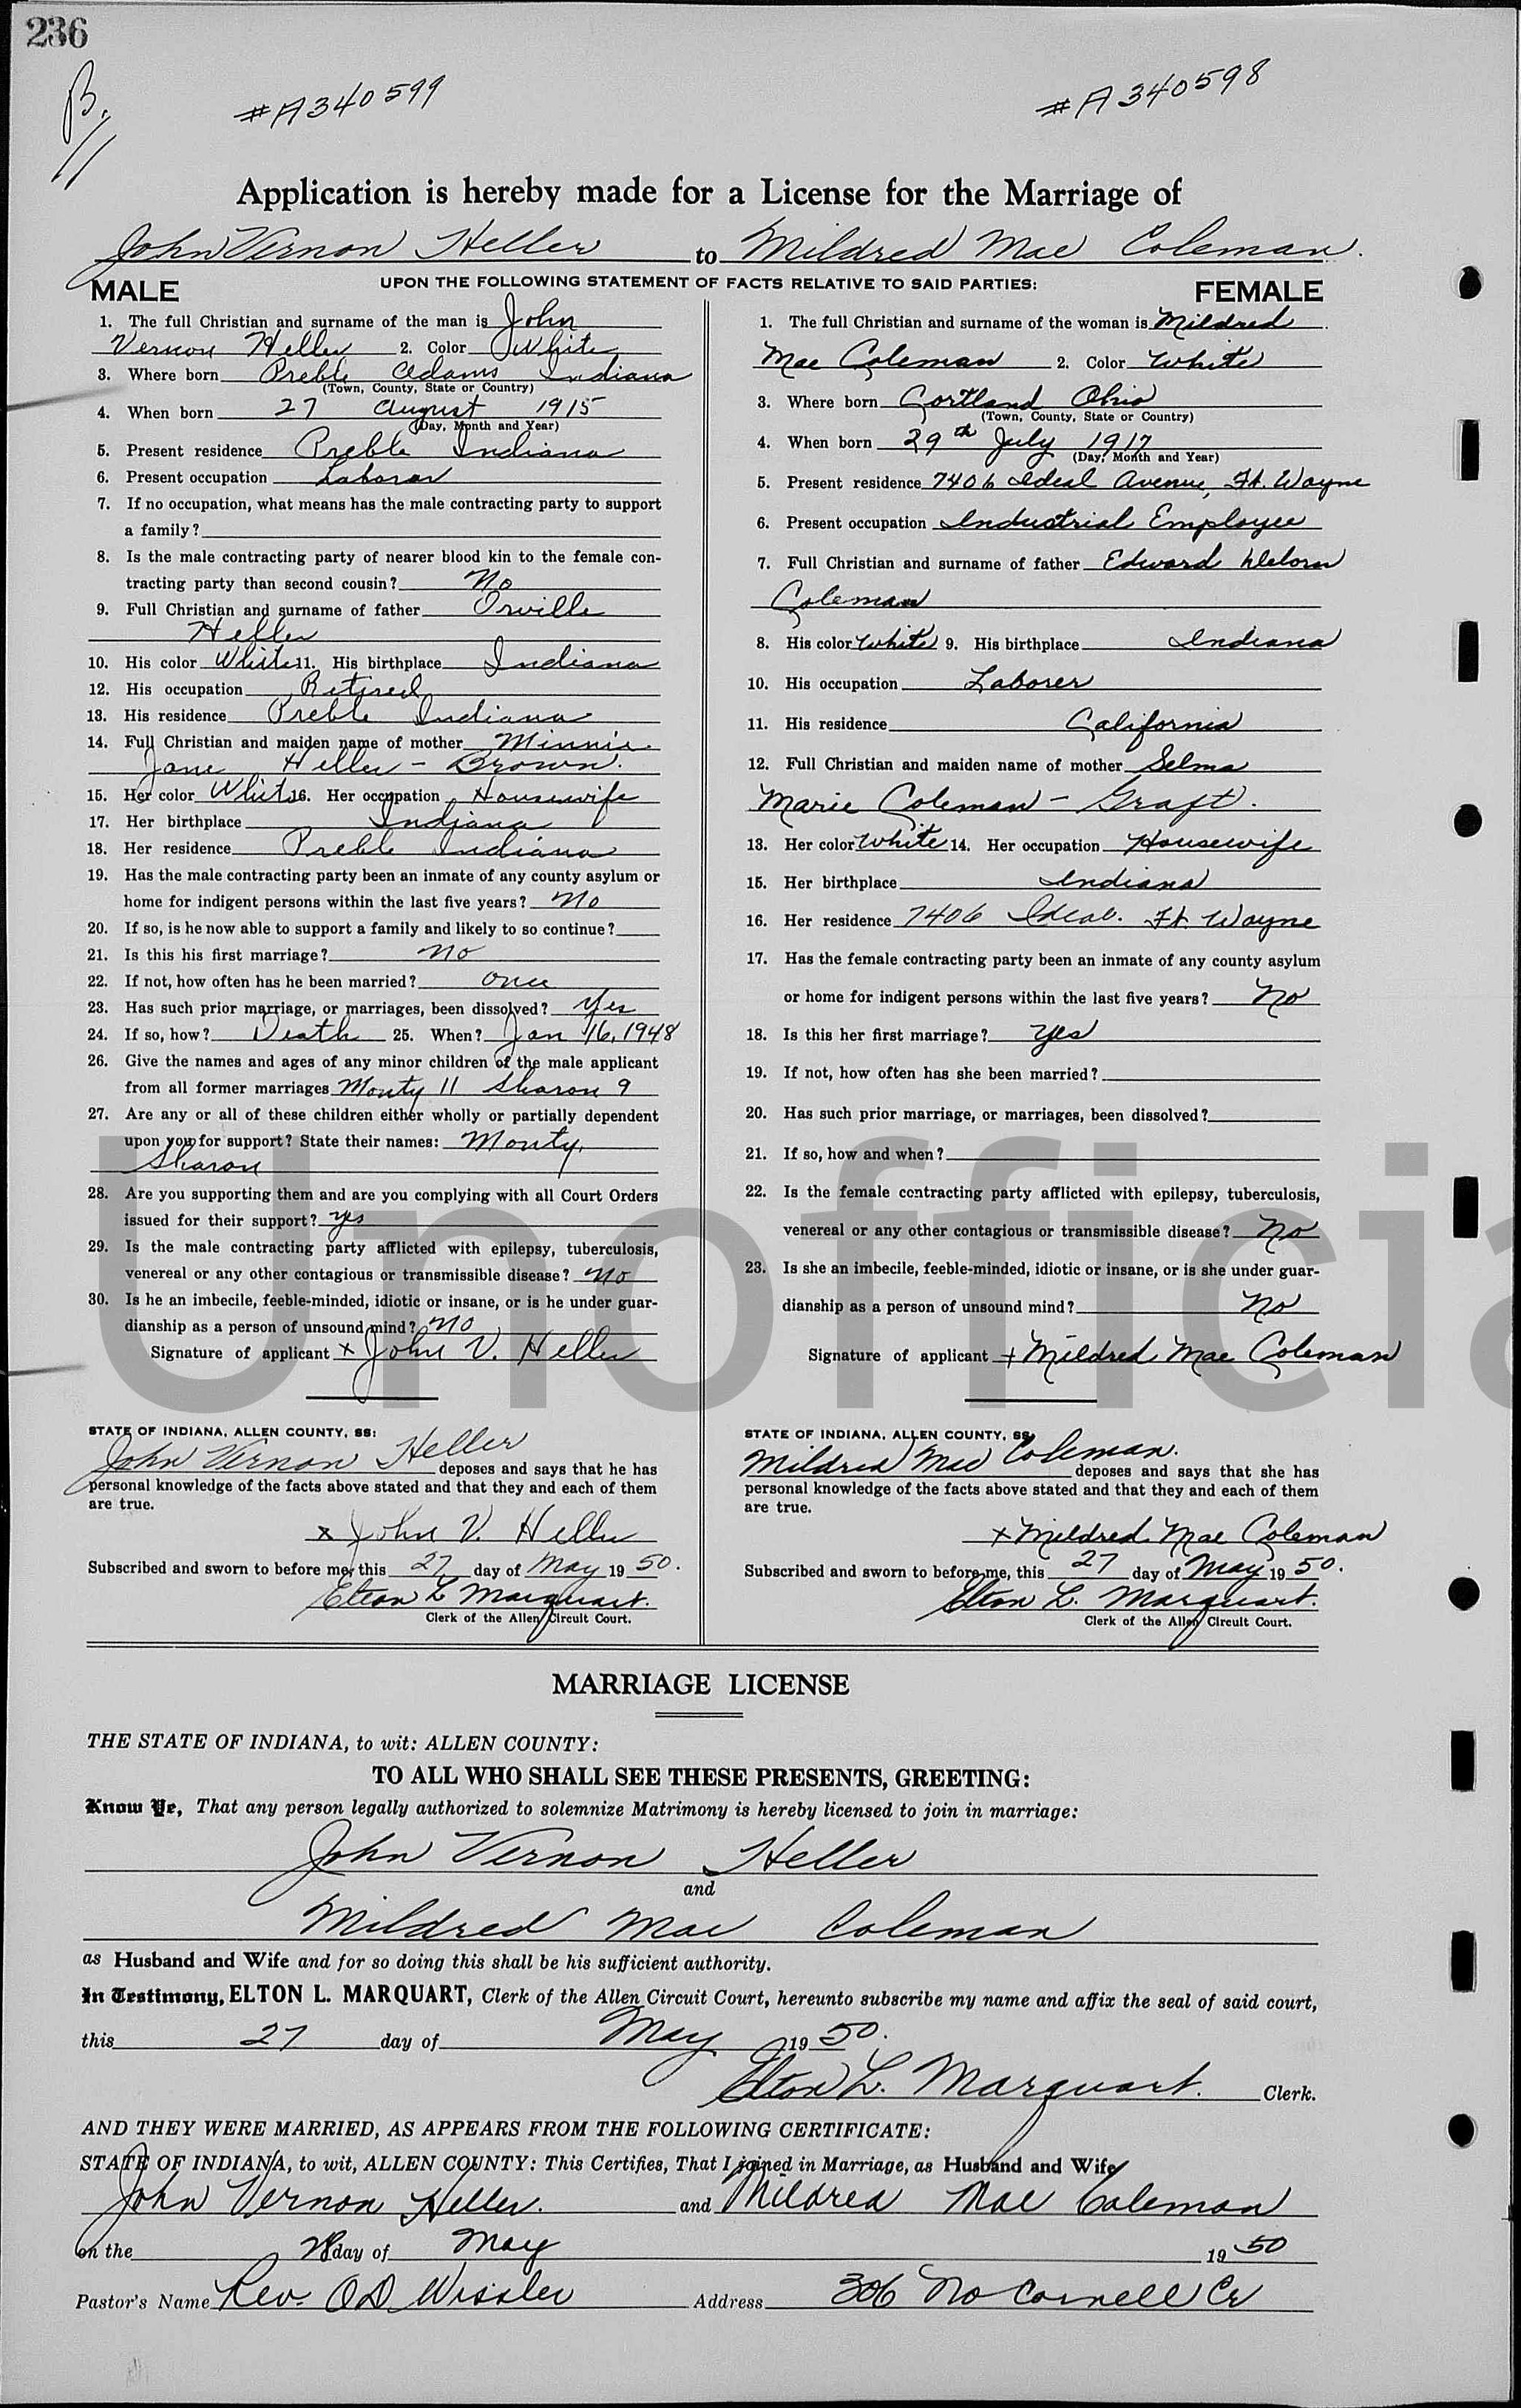 236
B.
#A340599
#A340598
Application is hereby made for a License for the Marriage of
John Vernon Heller to Mildred Mae Coleman.
UPON THE FOLLOWING STATEMENT OF FACTS RELATIVE TO SAID PARTIES:
MALE
1. The full Christian and surname of the man is John
Vernon Heller 2. Color White
3. Where born Preble Adams Indiana
(Town, County, State or Country)
4. When born 27 August 1915
(Day, Month and Year)
5. Present residence Preble Indiana
6. Present occupation Laborer
7. If no occupation, what means has the male contracting party to support
a family?
8. Is the male contracting party of nearer blood kin to the female con-
tracting party than second cousin? No
9. Full Christian and surname of father Orville
Heller
10. His color White 11. His birthplace Indiana
12. His occupation Retired
13. His residence Preble Indiana
14. Full Christian and maiden name of mother Minnie
Jane Heller - Brown.
15. Her color White 16. Her occupation Housewife
17. Her birthplace Indiana
18. Her residence Preble Indiana
19. Has the male contracting party been an inmate of any county asylum or
home for indigent persons within the last five years? No
20. If so, is he now able to support a family and likely to so continue?
21. Is this his first marriage? no
22. If not, how often has he been married? once
23. Has such prior marriage, or marriages, been dissolved? Yes
24. If so, how? Death 25. When? Jan 16, 1948
26. Give the names and ages of any minor children of the male applicant
from all former marriages Monty 11 Sharon 9
27. Are any or all of these children either wholly or partially dependent
upon you for support? State their names: Monty,
Sharon
28. Are you supporting them and are you complying with all Court Orders
issued for their support? yes
29. Is the male contracting party afflicted with epilepsy, tuberculosis,
venereal or any other contagious or transmissible disease? No
30. Is he an imbecile, feeble-minded, idiotic or insane, or is he under guar-
dianship as a person of unsound mind? No
Signature of applicant x John V. Heller
STATE OF INDIANA, ALLEN COUNTY, SS:
John Vernon Heller deposes and says that he has
personal knowledge of the facts above stated and that they and each of them
are true.
x John V. Heller
Subscribed and sworn to before me, this 27 day of May 1950.
Elton L Marquart.
Clerk of the Allen Circuit Court.
FEMALE
1. The full Christian and surname of the woman is Mildred
Mae Coleman 2. Color White
3. Where born Cortland Ohio
(Town, County, State or Country)
4. When born 29th July 1917
(Day, Month and Year)
5. Present residence 7406 Ideal Avenue, Ft. Wayne
6. Present occupation Industrial Employee
7. Full Christian and surname of father Edward
Coleman
8. His color White 9. His birthplace Indiana
10. His occupation Laborer
11. His residence California
12. Full Christian and maiden name of mother Selma
Marie Coleman - Graft.
13. Her color White 14. Her occupation Housewife
15. Her birthplace Indiana
16. Her residence 7406 Ideal. Ft. Wayne
17. Has the female contracting party been an inmate of any county asylum
or home for indigent persons within the last five years? No
18. Is this her first marriage? yes
19. If not, how often has she been married?
20. Has such prior marriage, or marriages, been dissolved?
21. If so, how and when?
22. Is the female contracting party afflicted with epilepsy, tuberculosis,
venereal or any other contagious or transmissible disease? No
23. Is she an imbecile, feeble-minded, idiotic or insane, or is she under guar-
dianship as a person of unsound mind? No
Signature of applicant + Mildred Mae Coleman
STATE OF INDIANA, ALLEN COUNTY, SS.
Mildred Mae Coleman. deposes and says that she has
personal knowledge of the facts above stated and that they and each of them
are true.
x Mildred Mae Coleman
Subscribed and sworn to before me, this 27 day of May 1950.
Elton L. Marquart.
Clerk of the Allen Circuit Court.
Unofficia
MARRIAGE LICENSE
THE STATE OF INDIANA, to wit: ALLEN COUNTY:
TO ALL WHO SHALL SEE THESE PRESENTS, GREETING:
Know Ye, That any person legally authorized to solemnize Matrimony is hereby licensed to join in marriage:
John Vernon Heller
and
Mildred Mae Coleman
as Husband and Wife and for so doing this shall be his sufficient authority.
In Testimony, ELTON L. MARQUART, Clerk of the Allen Circuit Court, hereunto subscribe my name and affix the seal of said court,
this 27 day of May 1950.
Elton L. Marquart. Clerk.
AND THEY WERE MARRIED, AS APPEARS FROM THE FOLLOWING CERTIFICATE:
STATE OF INDIANA, to wit, ALLEN COUNTY: This Certifies, That I joined in Marriage, as Husband and Wife
John Vernon Heller. and Mildred Mae Coleman
on the 28 day of May 1950
Pastor's Name Rev. O D Wissler Address 306 No Cornell Cr